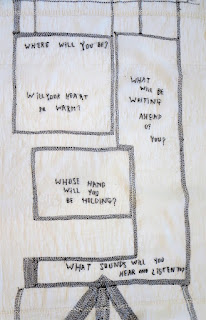 WHERE WILL YOU BE?
WILL YOUR HEART
BE WARM?
WHAT
WILL BE
WAITING
AHEAD
OF
YOU?
WHOSE HAND
WILL YOU
BE HOLDING?
WHAT SOUNDS WILL YOU
HEAR AND LISTEN TO?